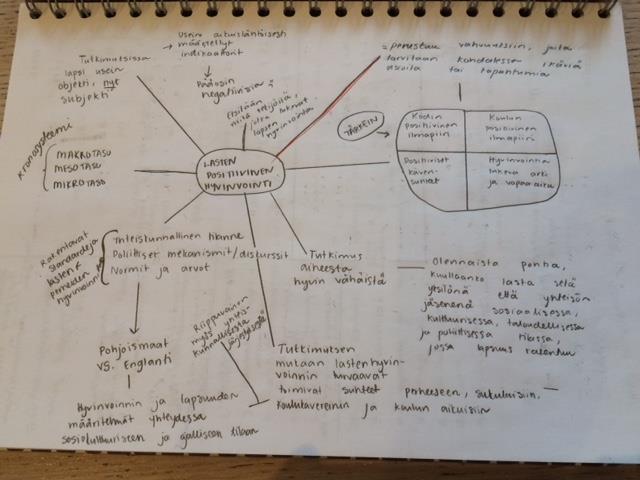 Tutkimuksissa
lapsi usein
objekti, nyt
subjekti
→ Usein aikuislähtöisesti
määritellyt
indikaattorit
Pääosin
negatiivisia
Etsitään
niitä tekijöitä,
jotka tukevat
lapsen
hyvinvointia
= perustuu vahvuuksiin, joita
tarvitaan kohdatessa ikäviä
asioita tai tapahtumia
TÄRKEIN
Kodin
positiivinen
ilmapiiri
Koulun
positiivinen
ilmapiiri
Positiiviset
kaveri-
suhteet
Hyvinvointia
tukeva arki
ja vapaa-aika
LASTEN
POSITIIVINEN
HYVINVOINTI
Kronosysteemi
MAKROTASO
MESOTASO
MIKROTASO
Rakentavat
standardeja
lasten &
perheiden
hyvinvoinnille
Yhteiskunnallinen tilanne
Poliittiset mekanismit/diskurssit
Normit ja arvot
Pohjoismaat
VS. Englanti
Hyvinvoinnin ja lapsuuden
määritelmät yhteydessä
sosiokulttuuriseen ja ajalliseen tilaan
Riippuvainen
myös yhteis-
kunnallisesta
järjestyksestä
Tutkimus
aiheesta
hyvin vähäistä
Tutkimuksen
mukaan lasten hyvin-
voinnin turvaavat
toimivat suhteet perheeseen, sukulaisiin,
koulutovereihin ja koulun aikuisiin
— Olennaista pohtia,
kuullaanko lasta sekä
yksilönä että yhteisön
jäsenenä sosiaalisessa,
kulttuurisessa, taloudellisessa
ja poliittisessa tilassa,
jossa lapsuus rakentuu